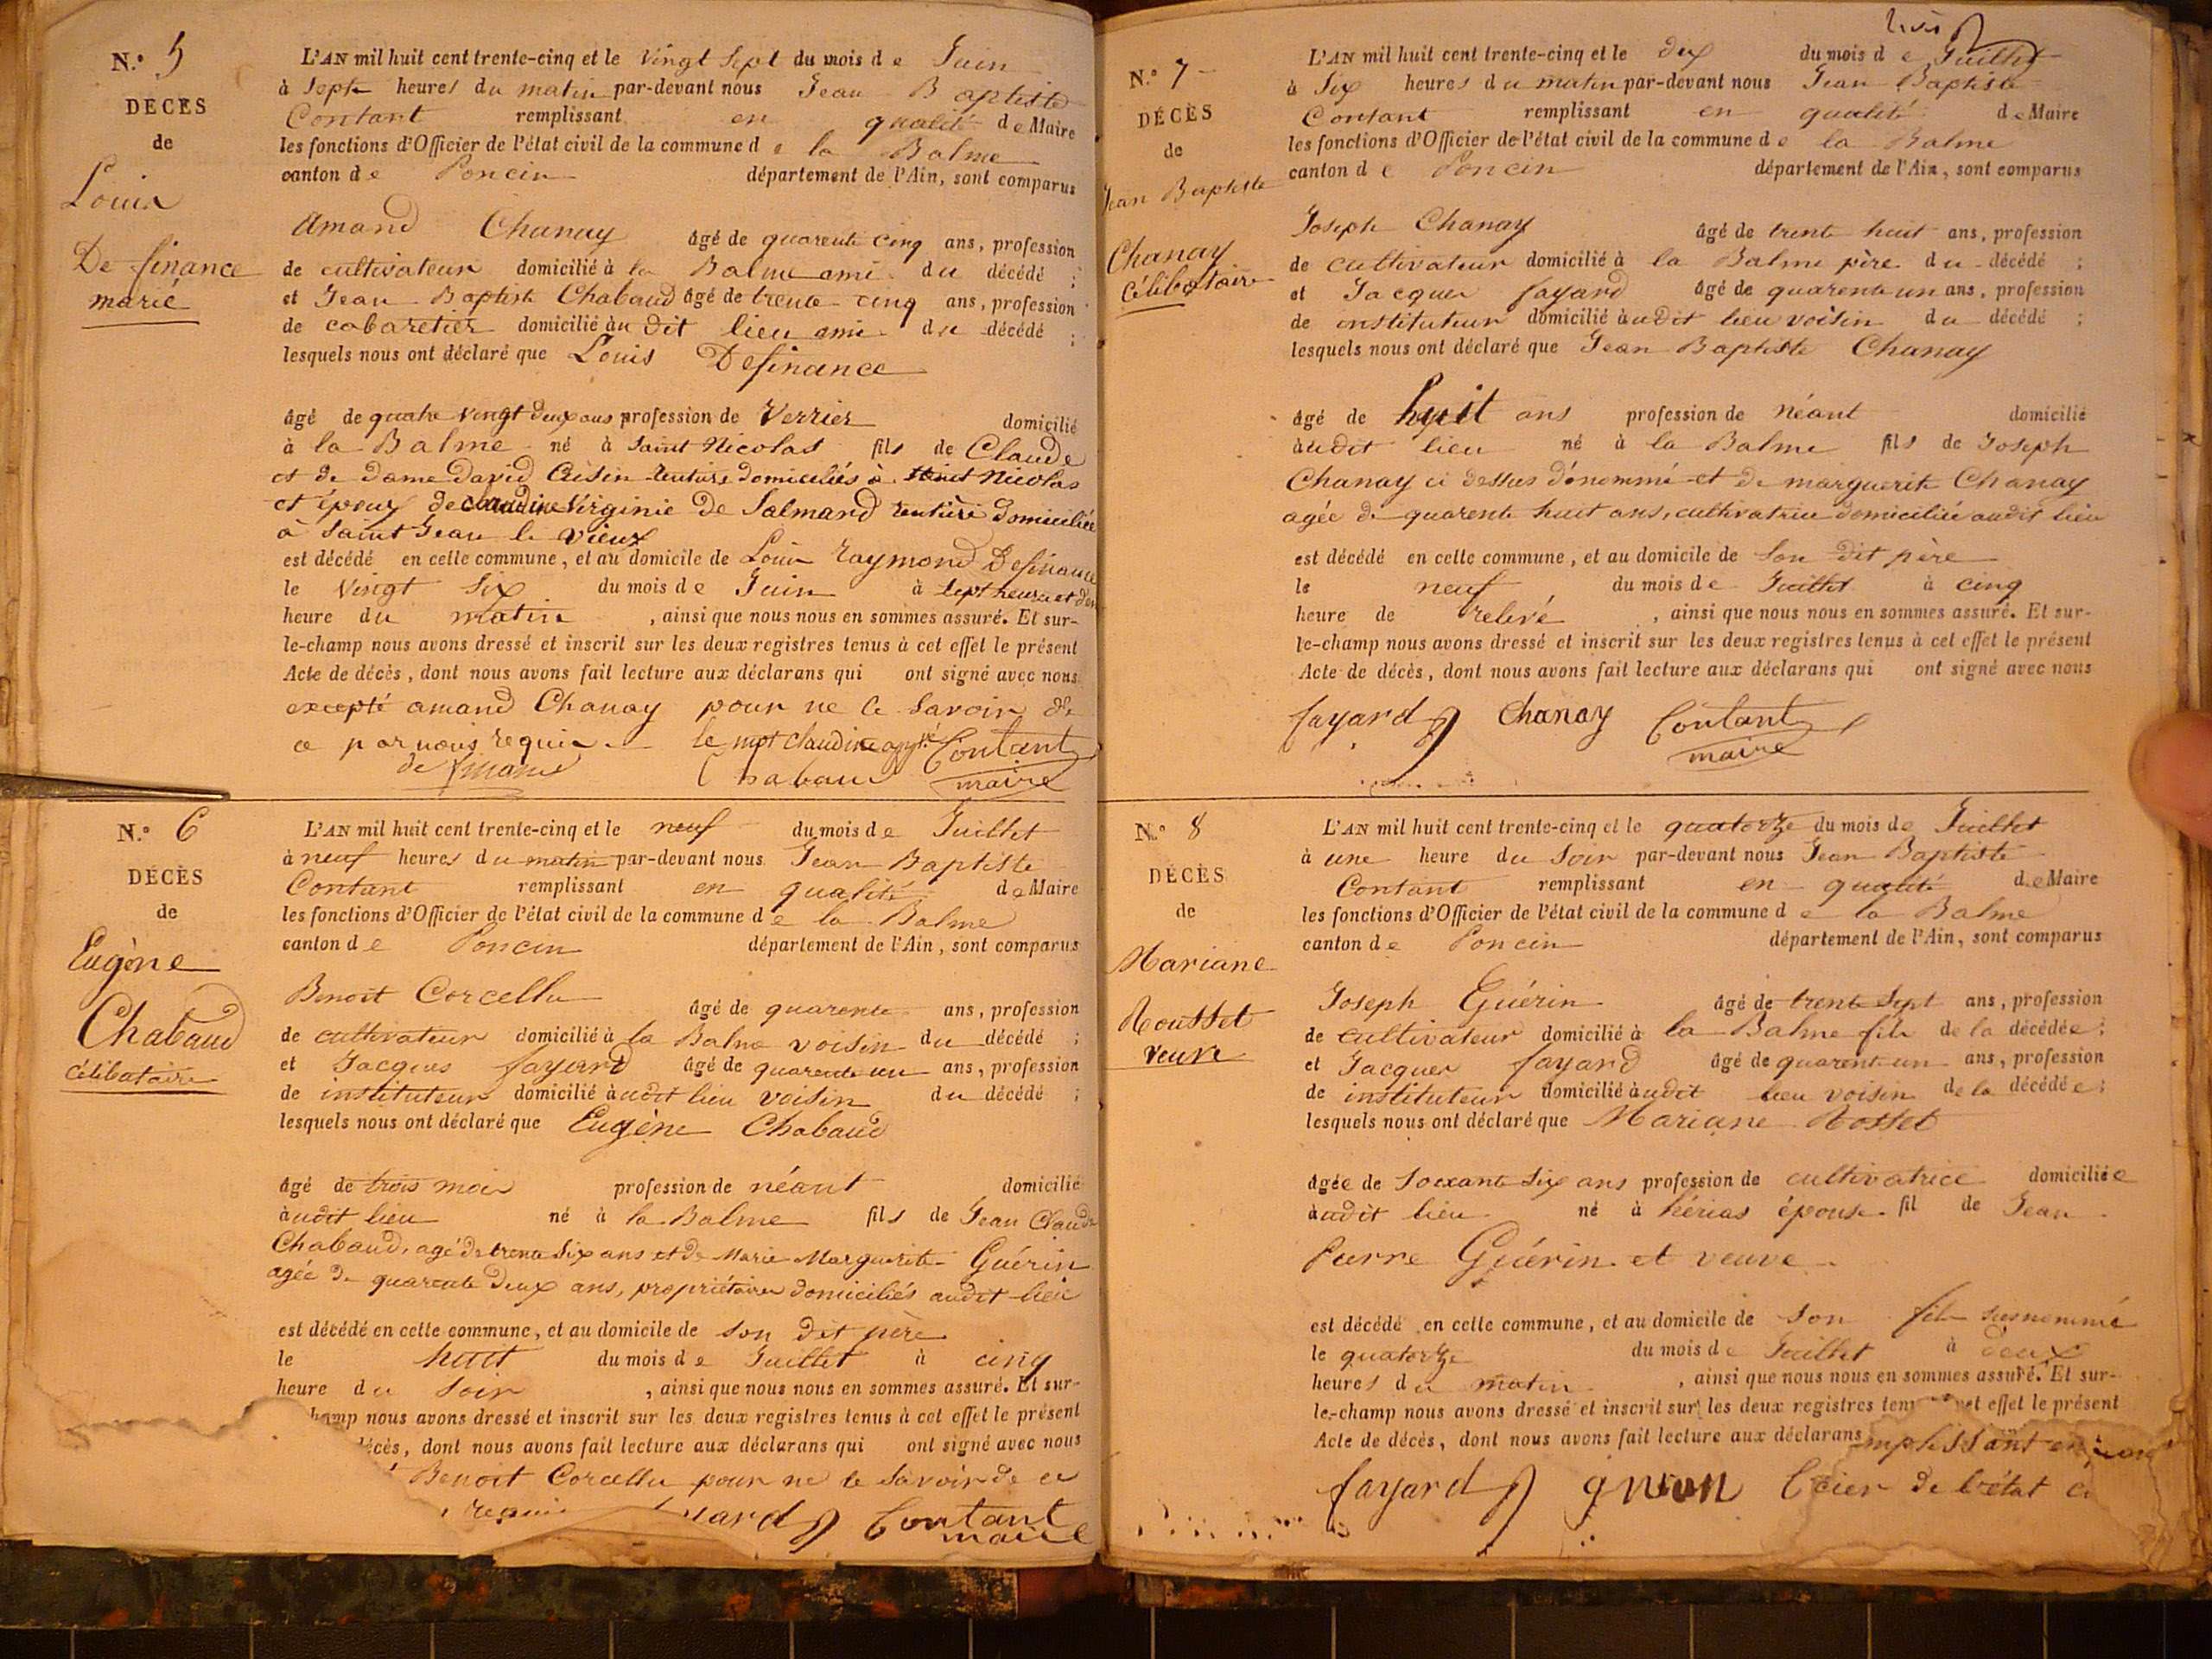 N.o 5
DÉCÈS
de
Louis
De finance
marié
L'AN mil huit cent trente-cinq et le vingt sept du mois de Juin
à sept heures du matin par-devant nous Jean Baptiste
Contant remplissant en qualité de Maire
les fonctions d'Officier de l'état civil de la commune de la Balme
canton de Poncin département de l'Ain, sont comparus
Amand Chanay âgé de quarente cinq ans, profession
de cultivateur domicilié à la Balme ami du décédé ;
et Jean Baptiste Chabaud âgé de trente cinq ans, profession
de cabaretier domicilié àu dit lieu ami du décédé ;
lesquels nous ont déclaré que Louis Definance
âgé de quatre vingt deux ans profession de Verrier domicilié
à la Balme né à Saint Nicolas fils de Claude
et de dame David rentière domiciliés à Saint Nicolas
et époux de Claudine Virginie de Salmard rentière domiciliée
à Saint Jean le vieux
est décédé en cette commune, et au domicile de Louis Raymond Definance
le vingt six du mois de Juin à sept heures et
heure du matin , ainsi que nous nous en sommes assuré. Et sur-
le-champ nous avons dressé et inscrit sur les deux registres tenus à cet effet le présent
Acte de décès, dont nous avons fait lecture aux déclarans qui ont signé avec nous
excepté amand Chanay pour ne le savoir de
ce par nous requis le mot claudine Contant
de finance Chabaud maire
N.o 6
DÉCÈS
de
Eugène
Chabaud
célibataire
L'AN mil huit cent trente-cinq et le neuf du mois de Juillet
à neuf heures du matin par-devant nous Jean Baptiste
Contant remplissant en qualité de Maire
les fonctions d'Officier de l'état civil de la commune de la Balme
canton de Poncin département de l'Ain, sont comparus
Benoit Corcellu âgé de quarente ans, profession
de cultivateur domicilié à la Balme voisin du décédé ;
et Jacques fayard âgé de quarente un ans, profession
de instituteur domicilié àudit lieu voisin du décédé ;
lesquels nous ont déclaré que Eugène Chabaud
âgé de trois mois profession de néant domicilié
àudit lieu né à la Balme fils de Jean Claude
Chabaud, agé de trente six ans et de Marie Marguerite Guérin
agée de quarente deux ans, propriétaires domiciliés audit lieu
est décédé en cette commune, et au domicile de son dit père
le huit du mois de Juillet à cinq
heure du soir , ainsi que nous nous en sommes assuré. Et sur-
champ nous avons dressé et inscrit sur les deux registres tenus à cet effet le présent
décès, dont nous avons fait lecture aux déclarans qui ont signé avec nous
Benoit Corcellu pour ne le savoir de ce
requis yard Contant
maire
N.o 7
DÉCÈS
de
Jean Baptiste
Chanay
célibataire
L'AN mil huit cent trente-cinq et le dix du mois de Juillet
à six heures du matin par-devant nous Jean Baptiste
Contant remplissant en qualité de Maire
les fonctions d'Officier de l'état civil de la commune de la Balme
canton de Poncin département de l'Ain, sont comparus
Joseph Chanay âgé de trente huit ans, profession
de cultivateur domicilié à la Balme père du décédé ;
et Jacques fayard âgé de quarente un ans, profession
de instituteur domicilié àudit lieu voisin du décédé ;
lesquels nous ont déclaré que Jean Baptiste Chanay
âgé de huit ans profession de néant domicilié
àudit lieu né à la Balme fils de Joseph
Chanay ci dessus dénommé et de marguerite Chanay
agée de quarente huit ans, cultivatrice domiciliée audit lieu
est décédé en cette commune, et au domicile de son dit père
le neuf du mois de Juillet à cinq
heure de relevé , ainsi que nous nous en sommes assuré. Et sur-
le-champ nous avons dressé et inscrit sur les deux registres tenus à cet effet le présent
Acte de décès, dont nous avons fait lecture aux déclarans qui ont signé avec nous
fayard Chanay Contant
maire
N.o 8
DÉCÈS
de
Mariane
Rousset
veuve
L'AN mil huit cent trente-cinq et le quatorze du mois de Juillet
à une heure du soir par-devant nous Jean Baptiste
Contant remplissant en qualité de Maire
les fonctions d'Officier de l'état civil de la commune de la Balme
canton de Poncin département de l'Ain, sont comparus
Joseph Guérin âgé de trente sept ans, profession
de cultivateur domicilié à la Balme fils de la décédée ;
et Jacques fayard âgé de quarente un ans, profession
de instituteur domicilié àudit lieu voisin de la décédée ;
lesquels nous ont déclaré que Mariane Rosset
âgée de soixante six ans profession de cultivatrice domiciliée
àudit lieu né à hérias épouse fil de Jean
Pierre Guérin et veuve
est décédé en cette commune, et au domicile de son fils susnommé
le quatorze du mois de Juillet à deux
heures du matin , ainsi que nous nous en sommes assuré. Et sur-
le-champ nous avons dressé et inscrit sur les deux registres ten et effet le présent
Acte de décès, dont nous avons fait lecture aux déclarans mplissant en
fayard cier de l'état ci